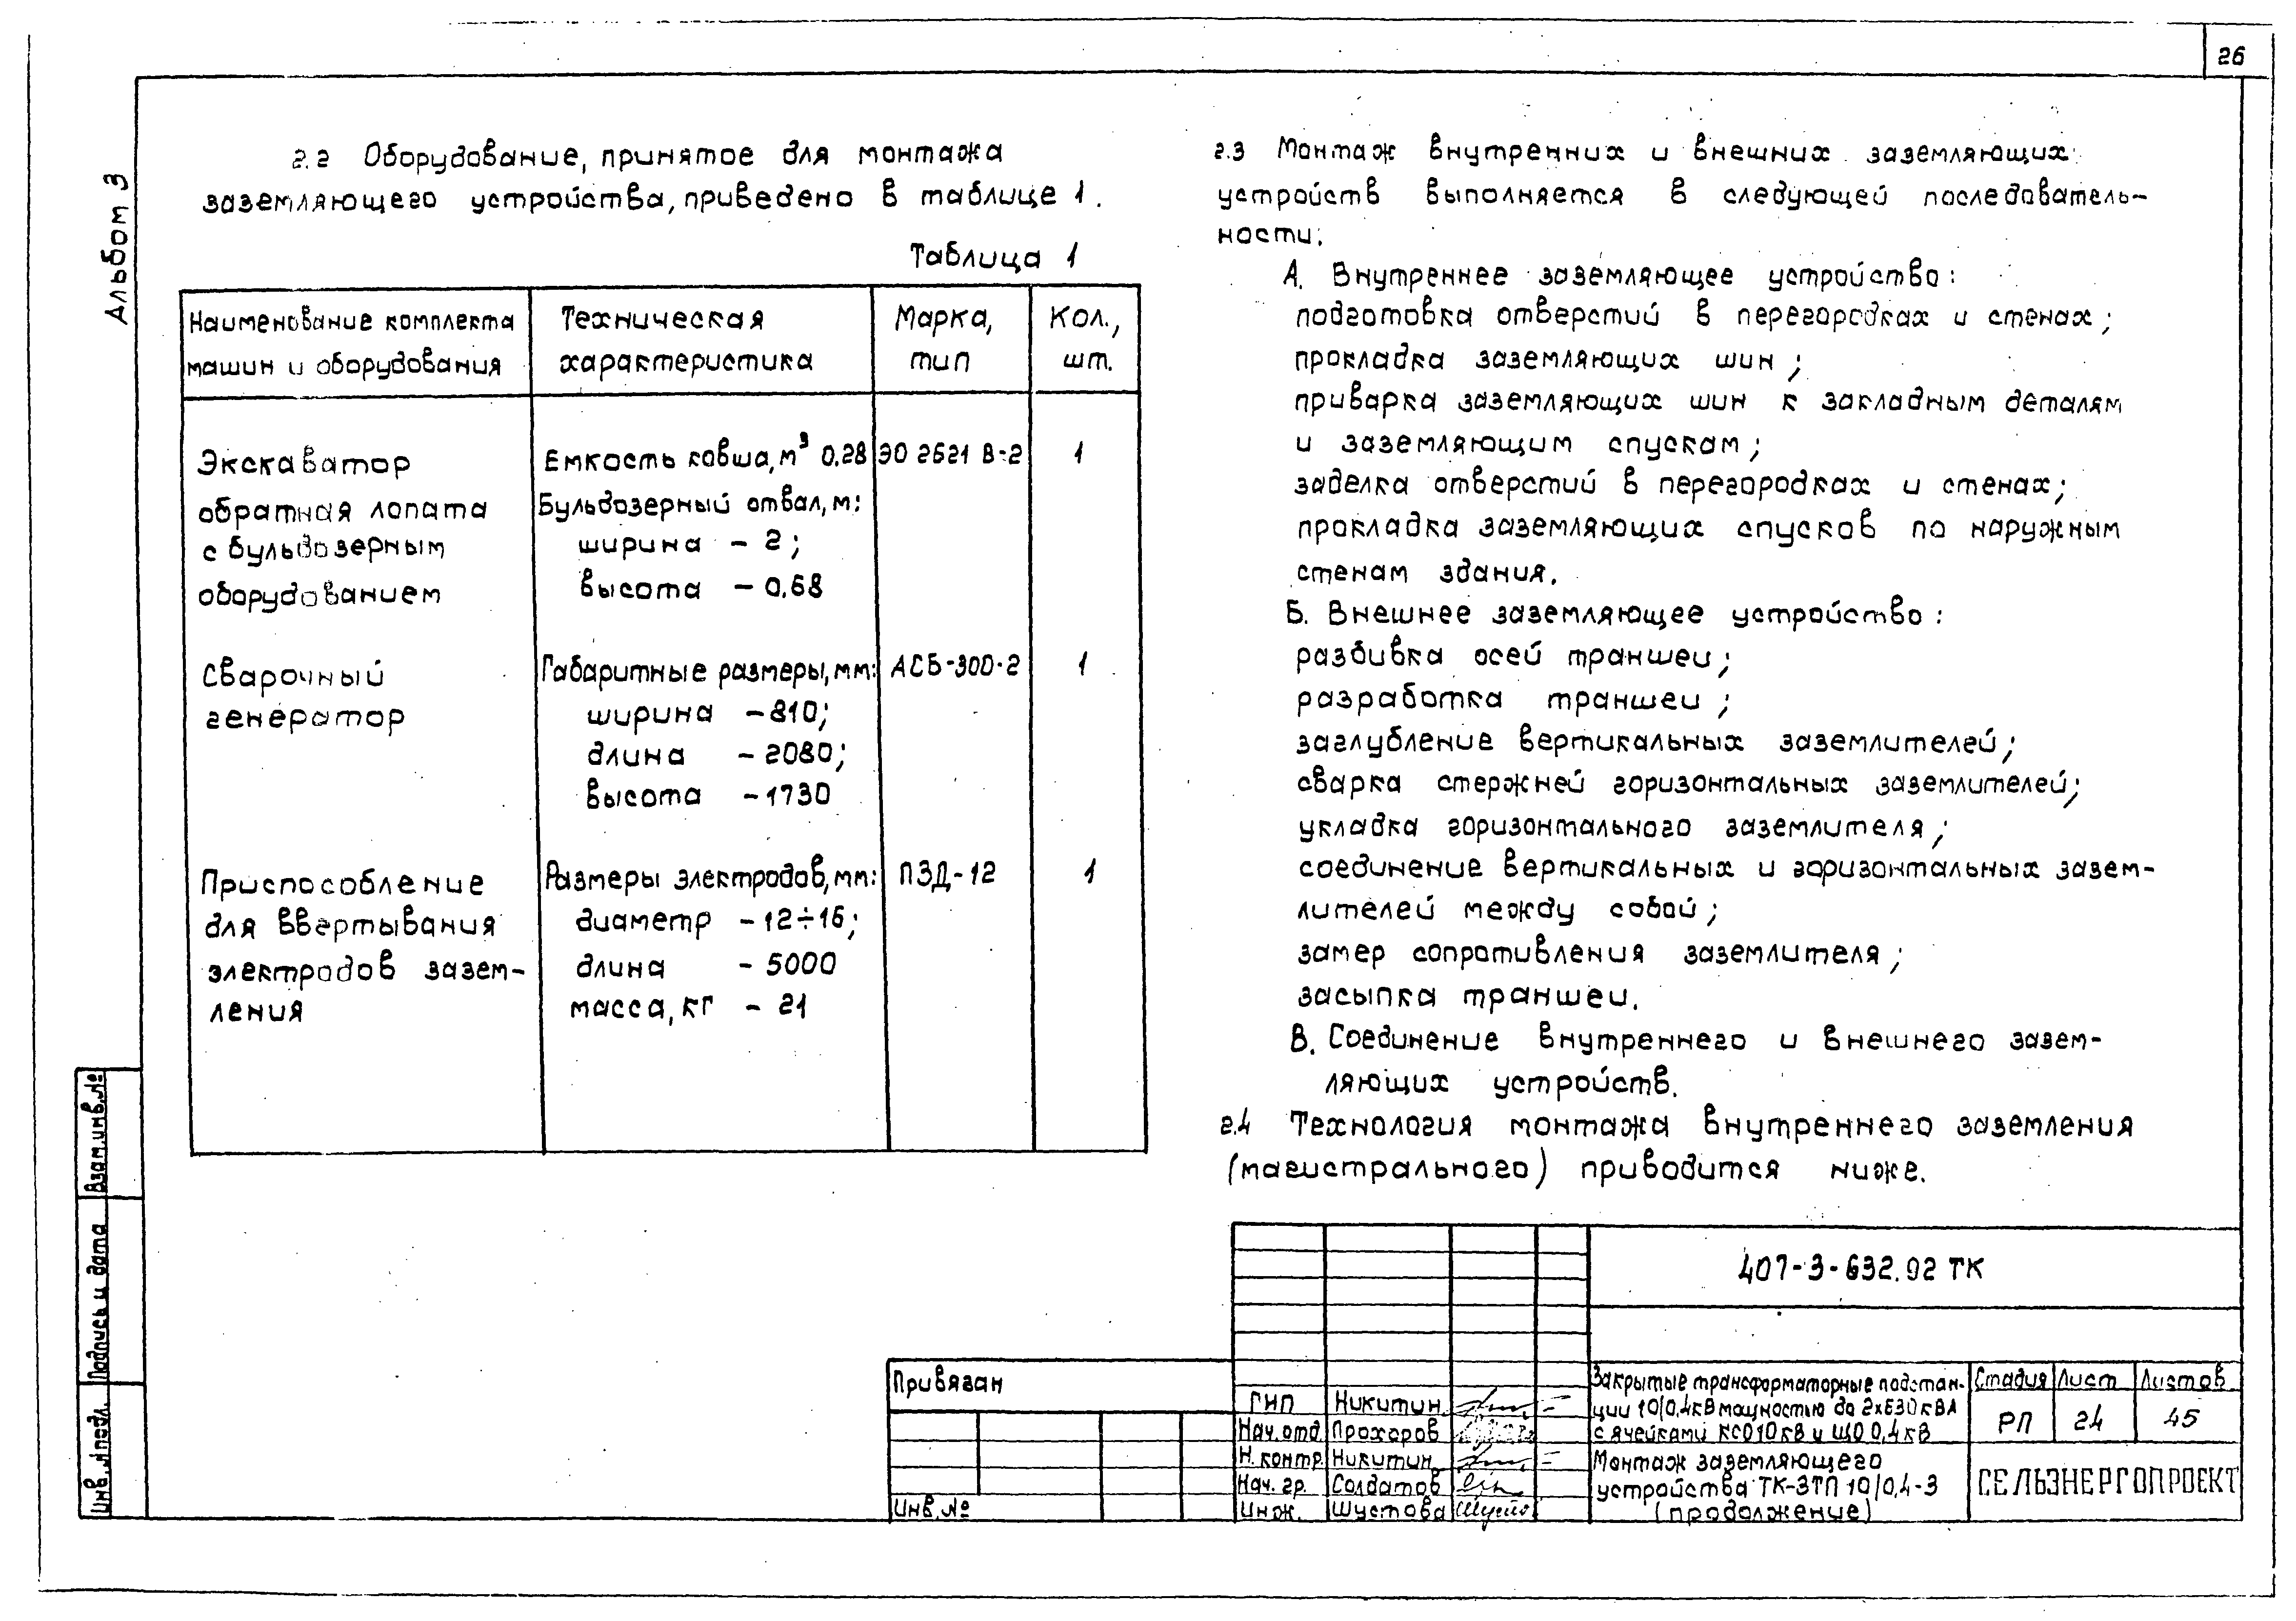 26
Альбом 3
2.2 Оборудование, принятое для монтажа
заземляющего устройства, приведено в таблице 1.
Таблица 1
Наименование комплекта
машин и оборудования
Техническая
характеристика
Марка,
тип
Кол.,
шт.
Экскаватор
обратная лопата
с бульдозерным
оборудованием
Емкость ковша, м³ 0,28
Бульдозерный отвал, м:
ширина - 2;
высота - 0,68
ЭО 2621 В-2
1
Сварочный
генератор
Габаритные размеры, мм:
ширина - 810;
длина - 2080;
высота - 1730
АСБ-300-2
1
Приспособление
для ввертывания
электродов зазем-
ления
Размеры электродов, мм:
диаметр - 12÷16;
длина - 5000
масса, кг - 21
ПЗД-12
1
2.3 Монтаж внутренних и внешних заземляющих
устройств выполняется в следующей последователь-
ности:
А. Внутреннее заземляющее устройство:
подготовка отверстий в перегородках и стенах;
прокладка заземляющих шин;
приварка заземляющих шин к закладным деталям
и заземляющим спускам;
заделка отверстий в перегородках и стенах;
прокладка заземляющих спусков по наружным
стенам здания.
Б. Внешнее заземляющее устройство:
разбивка осей траншеи;
разработка траншеи;
заглубление вертикальных заземлителей;
сварка стержней горизонтальных заземлителей;
укладка горизонтального заземлителя;
соединение вертикальных и горизонтальных зазем-
лителей между собой;
замер сопротивления заземлителя;
засыпка траншеи.
В. Соединение внутреннего и внешнего зазем-
ляющих устройств.
2.4 Технология монтажа внутреннего заземления
(магистрального) приводится ниже.
Взам.инв.№
Подпись и дата
Инв.№ подл.
Привязан
Инв.№
ГИП Никитин
Нач.отд. Прохоров
Н.контр. Никитин
Нач.гр. Солдатов
Инж. Шустова
407-3-632.92 ТК
Закрытые трансформаторные подстан-
ции 10/0,4кВ мощностью до 2х630кВА
с ячейками КСО10кВ и ЩО 0,4кВ
Стадия Лист Листов
РП 24 45
Монтаж заземляющего
устройства ТК-ЗТП 10/0,4-3
(продолжение)
СЕЛЬЭНЕРГОПРОЕКТ